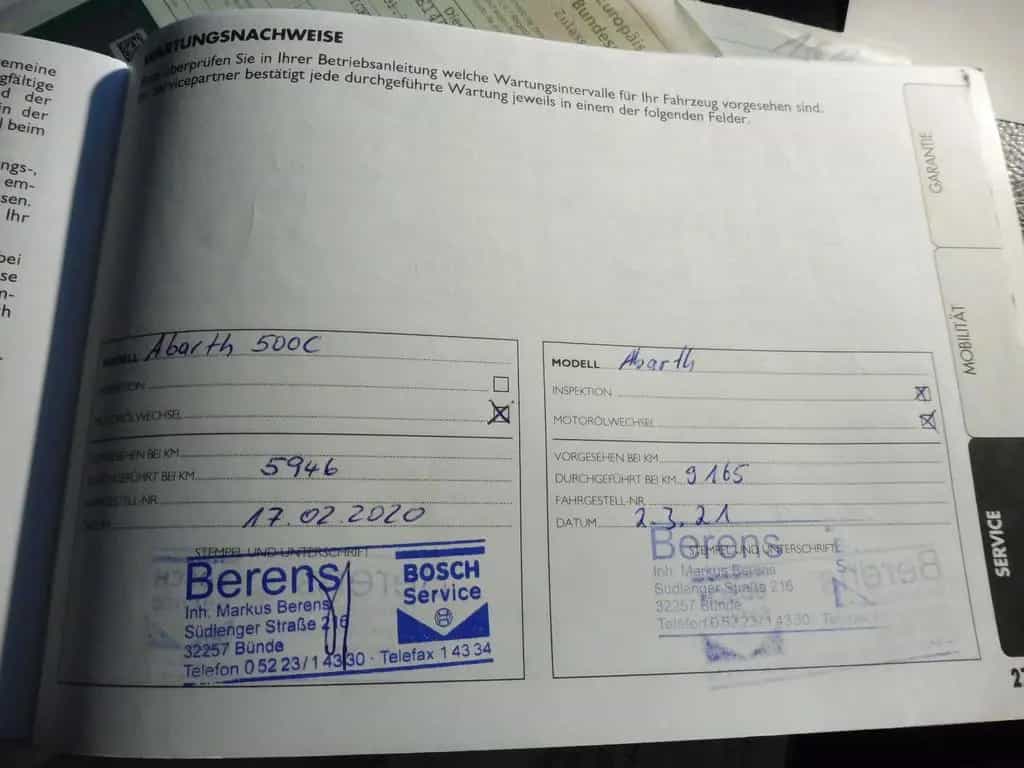 Europäis
Bundes
Zulass
Die
WARTUNGSNACHWEISE
überprüfen Sie in Ihrer Betriebsanleitung welche Wartungsintervalle für Ihr Fahrzeug vorgesehen sind.
Servicepartner bestätigt jede durchgeführte Wartung jeweils in einem der folgenden Felder.
emeine
gfältige
d der
in der
l beim
ngs-,
em-
sen.
Ihr
bei
se
n-
h
GARANTIE
MOBILITÄT
SERVICE
MODELL Abarth 500C
INSPEKTION
MOTORÖLWECHSEL
VORGESEHEN BEI KM
DURCHGEFÜHRT BEI KM 5946
FAHRGESTELL-NR.
DATUM 17.02.2020
STEMPEL UND UNTERSCHRIFT
Berens
Inh. Markus Berens
Südlenger Straße 216
32257 Bünde
Telefon 0 52 23/1 43 30 · Telefax 1 43 34
BOSCH
Service
MODELL Abarth
INSPEKTION
MOTORÖLWECHSEL
VORGESEHEN BEI KM
DURCHGEFÜHRT BEI KM 9165
FAHRGESTELL-NR.
DATUM 2.3.21
STEMPEL UND UNTERSCHRIFT
Berens
Inh. Markus Berens
Südlenger Straße 216
32257 Bünde
Telefon 0 52 23/1 43 30
27